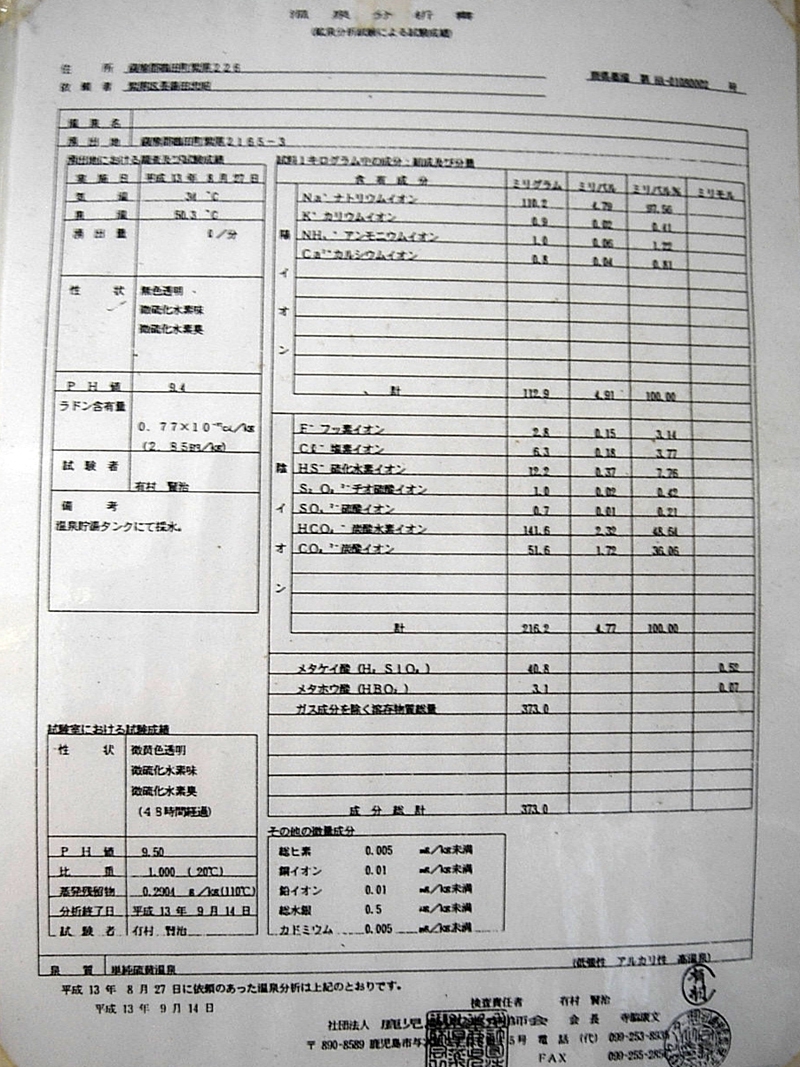 温泉分析書
(鉱泉分析試験による試験成績)
住所 薩摩郡鶴田町紫尾226
依頼者 紫尾区長
源泉名
湧出地 薩摩郡鶴田町紫尾2165-3
湧出地における調査及び試験成績
実施日 平成13年8月27日
気温 34 ℃
泉温 50.3 ℃
湧出量 ℓ/分
性状 無色透明
微硫化水素味
微硫化水素臭
PH値 9.4
ラドン含有量
0.77×10 ci/kg
(2.85Bq/kg)
試験者
有村 賢治
備考
温泉貯湯タンクにて採水。
試料1キログラム中の成分・組成及び分量
含有成分 ミリグラム ミリバル ミリバル% ミリモル
陽イオン
Na⁺ ナトリウムイオン 110.2 4.79 97.56
K⁺ カリウムイオン 0.9 0.02 0.41
NH₄⁺ アンモニウムイオン 1.0 0.06 1.22
Ca²⁺ カルシウムイオン 0.8 0.04 0.81
計 112.9 4.91 100.00
陰イオン
F⁻ フッ素イオン 2.8 0.15 3.14
Cℓ⁻ 塩素イオン 6.3 0.18 3.77
HS⁻ 硫化水素イオン 12.2 0.37 7.76
S₂O₃²⁻ チオ硫酸イオン 1.0 0.02 0.42
SO₄²⁻ 硫酸イオン 0.7 0.01 0.21
HCO₃⁻ 炭酸水素イオン 141.6 2.32 48.64
CO₃²⁻ 炭酸イオン 51.6 1.72 36.06
計 216.2 4.77 100.00
メタケイ酸(H₂SiO₃) 40.8 0.52
メタホウ酸(HBO₂) 3.1 0.07
ガス成分を除く溶存物質総量 373.0
成分総計 373.0
試験室における試験成績
性状 微黄色透明
微硫化水素味
微硫化水素臭
(48時間経過)
PH値 9.50
比重 1.000 (20℃)
蒸発残留物 0.2904 g/kg(110℃)
分析終了日 平成13年9月14日
試験者 有村 賢治
その他の微量成分
総ヒ素 0.005 mg/kg未満
銅イオン 0.01 mg/kg未満
鉛イオン 0.01 mg/kg未満
総水銀 0.5 /kg未満
カドミウム 0.005 mg/kg未満
泉質 単純硫黄温泉 (低張性 アルカリ性 高温泉)
平成13年8月27日に依頼のあった温泉分析は上記のとおりです。
平成13年9月14日
検査責任者 有村 賢治
社団法人 鹿児島 会長 寺脇康文
〒890-8589 鹿児島市与 5号 電話(代) 099-253-893
FAX 099-255-285